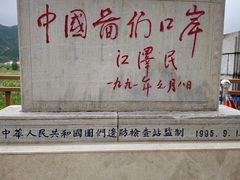 中國圖们口岸
江澤民
一九九一年元月八日
中華人民共和國圖們邊防檢查站監制 1995.9.1